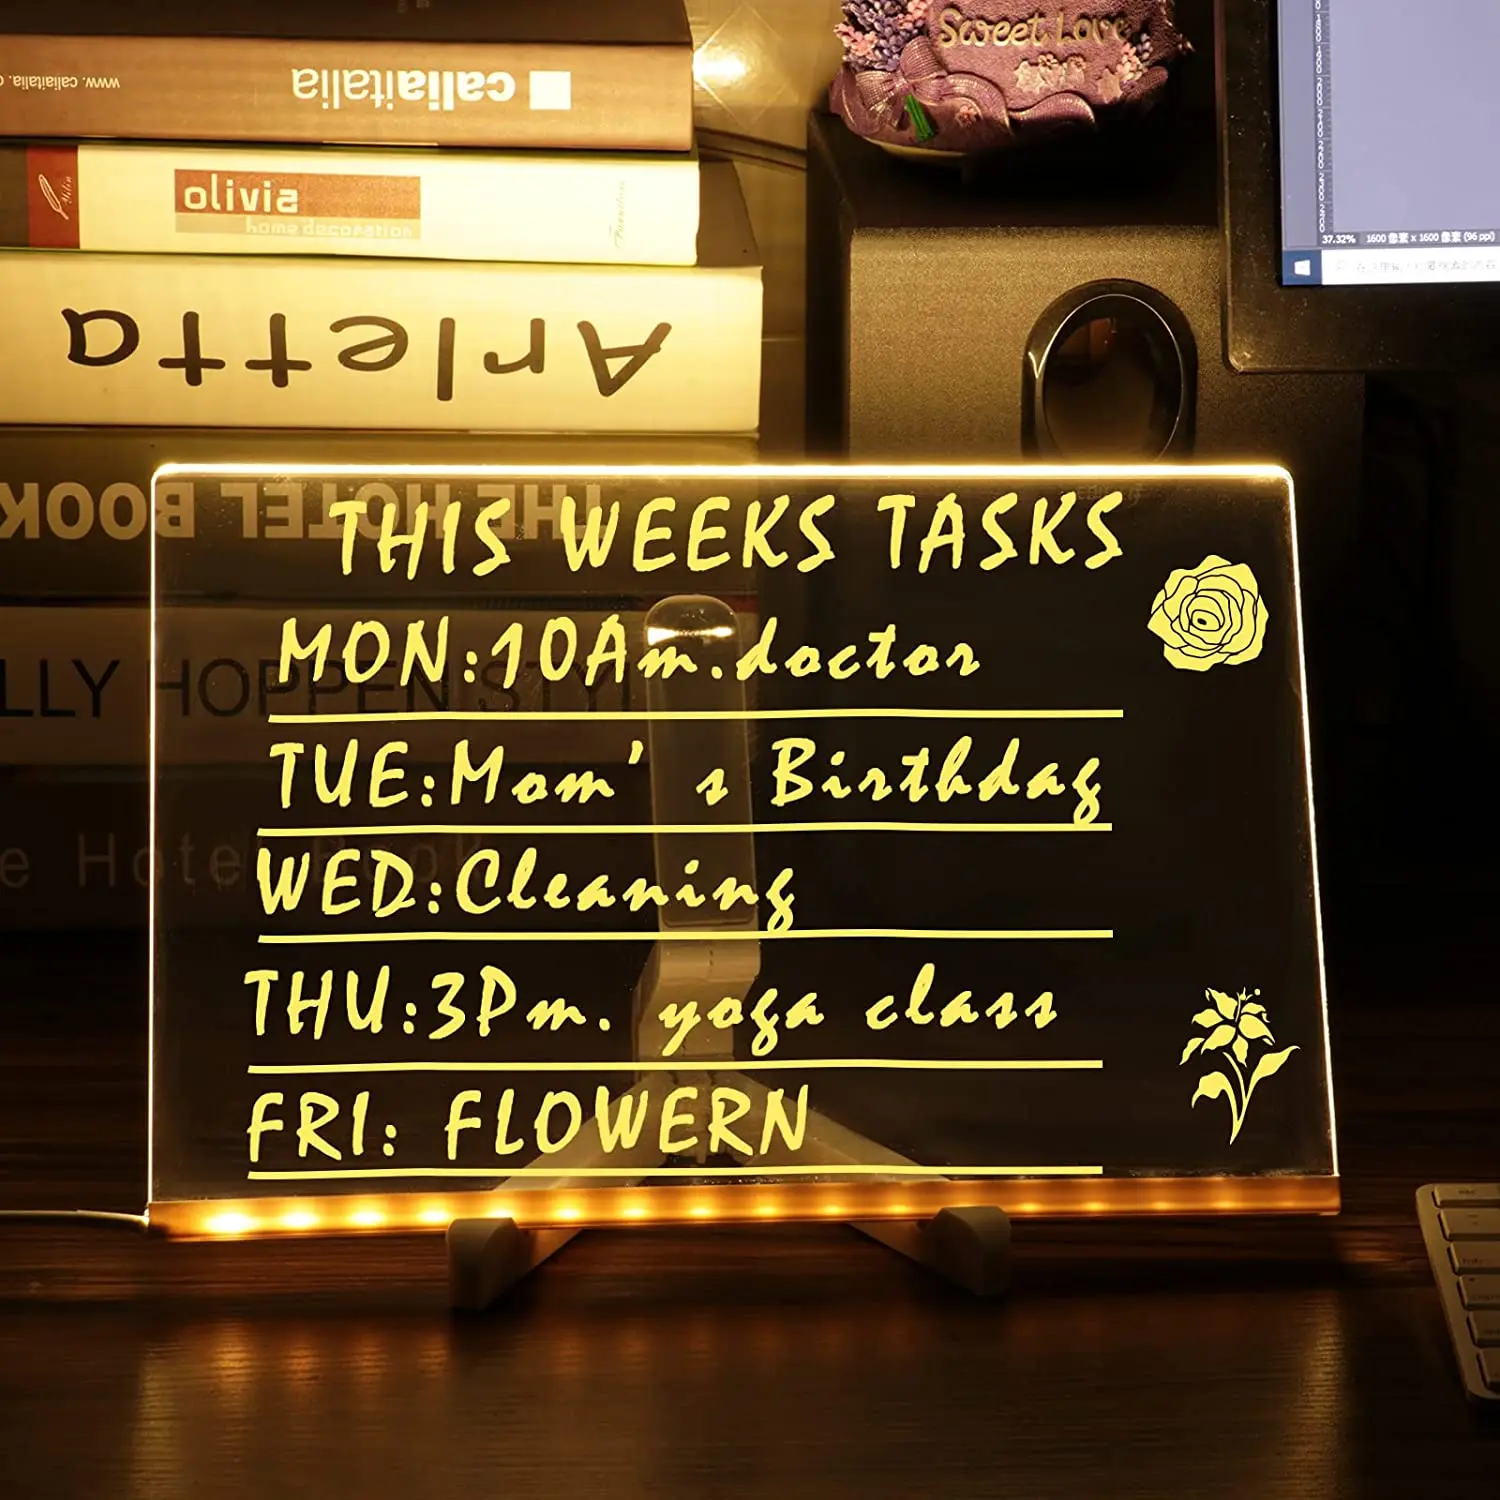 caliaitalia
www.caliaitalia.
olivia
home decoration
Arletta
THE HOTEL BOOK
LLY HOPPEN STYL
e Hotel Book
Sweet Love
37.32% 1600 像素 x 1600 像素 (96 ppi)
THIS WEEKS TASKS
MON:10Am.doctor
TUE:Mom's Birthday
WED:Cleaning
THU:3Pm. yoga class
FRI: FLOWERN